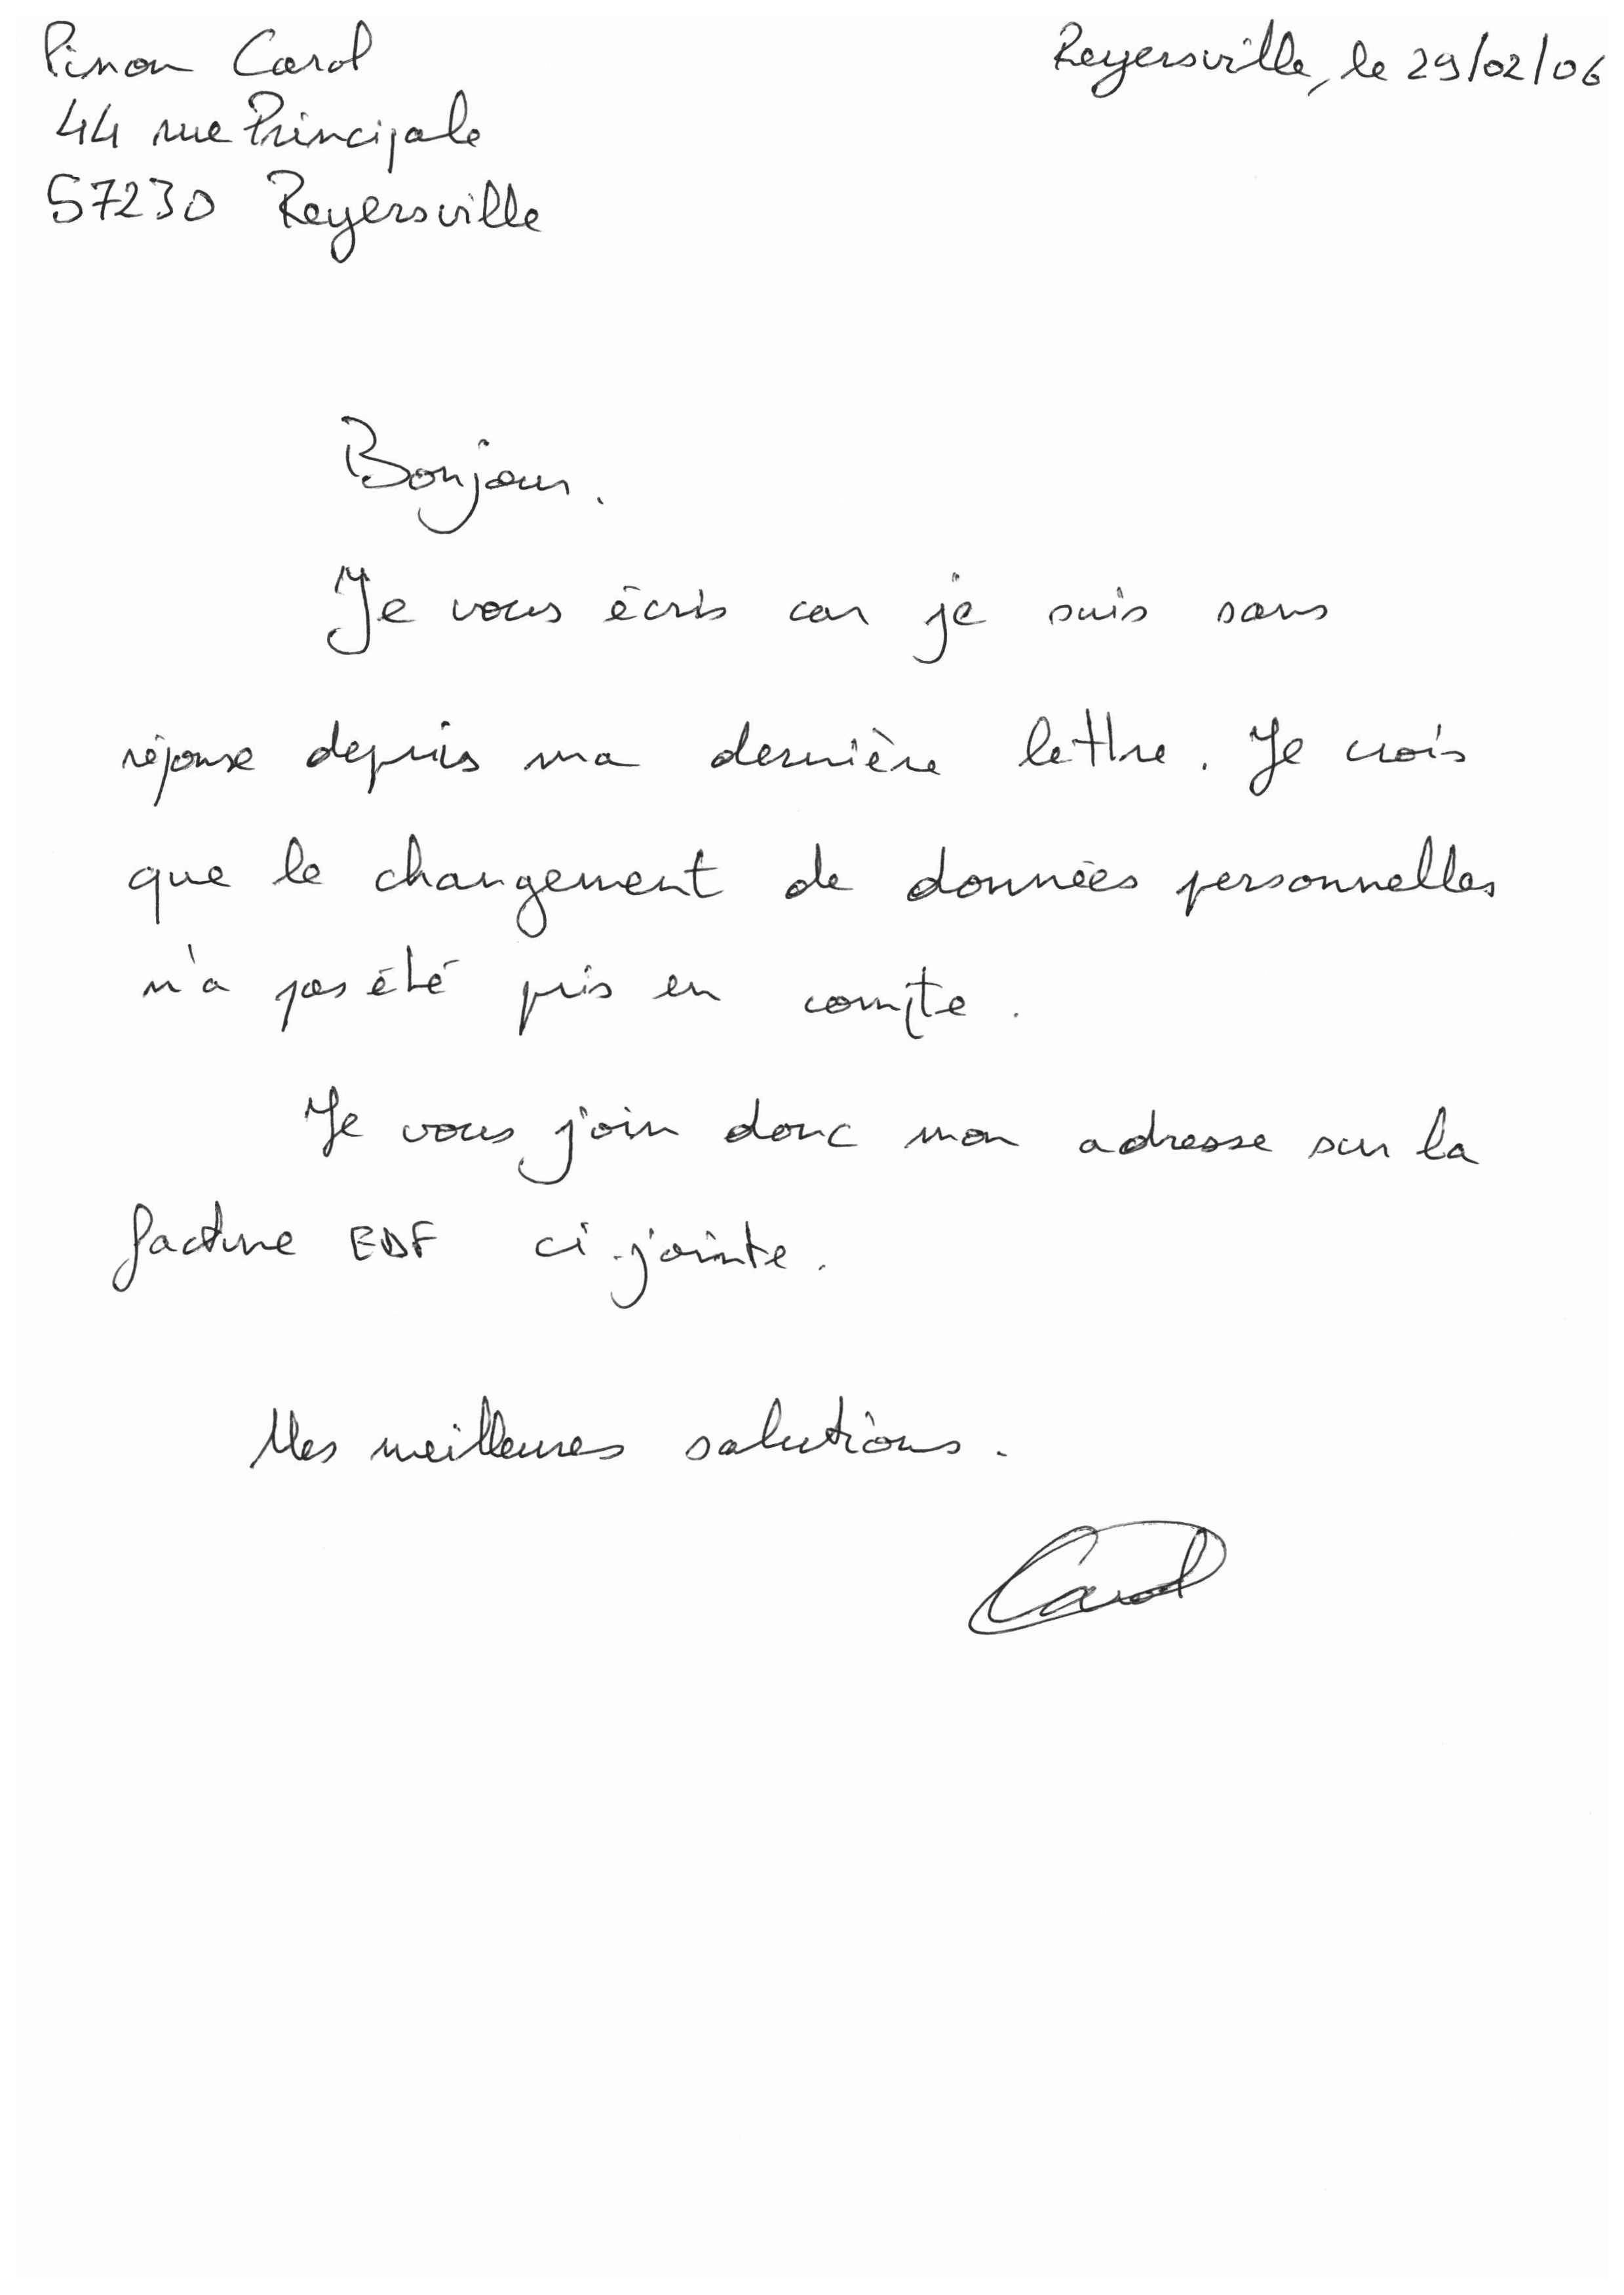 Pinon Carol
Reyersville, le 29/02/06
44 rue Principale
57230 Reyersville
Bonjour.
Je vous écris car je suis sans
réponse depuis ma dernière lettre. Je crois
que le changement de données personnelles
n'a pas été pris en compte.
Je vous join donc mon adresse sur la
facture EDF ci-jointe.
Mes meilleures salutions.
Carol